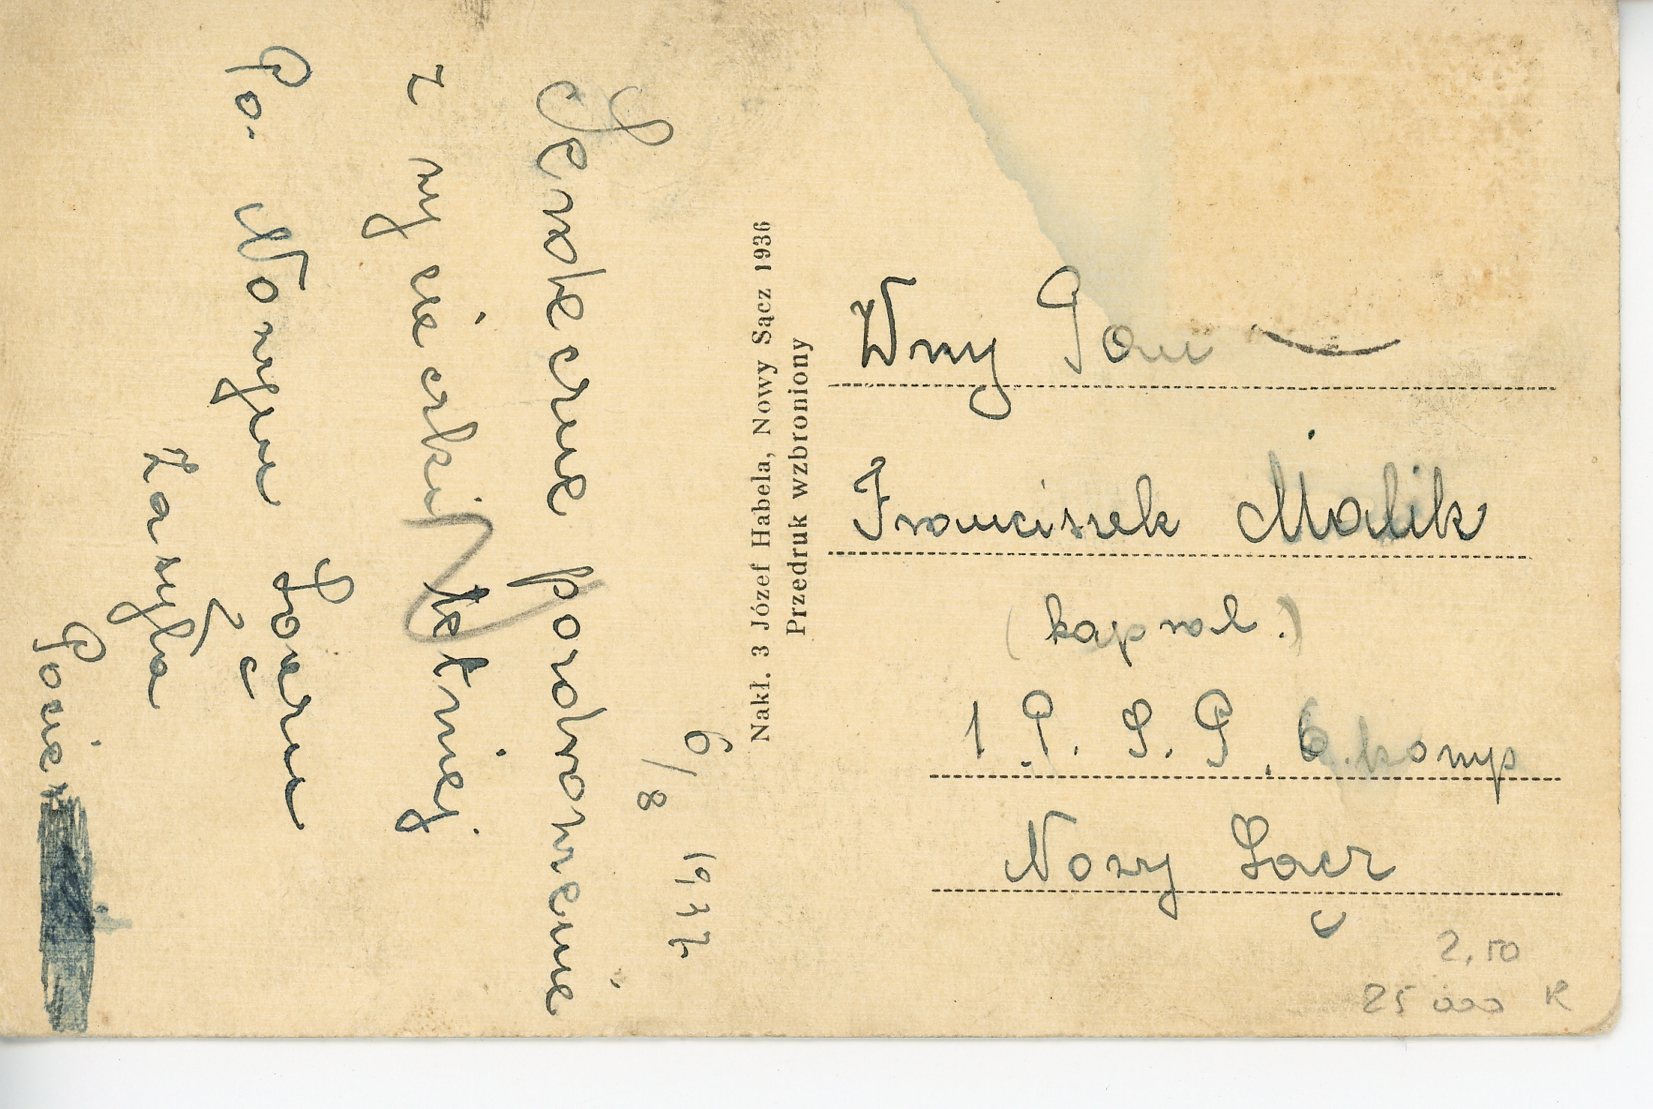 6/8 1937.
Serdeczne pozdrowienie
z wycieczki letniej
Po. Nowym Sączu
Zasyła
Nakł. 3 Józef Habela, Nowy Sącz 1936
Przedruk wzbroniony
Wny Pan
Franciszek Malik
(kapral.)
1. P. S. P. 6. komp
Nowy Sącz
2,50
25 000 K